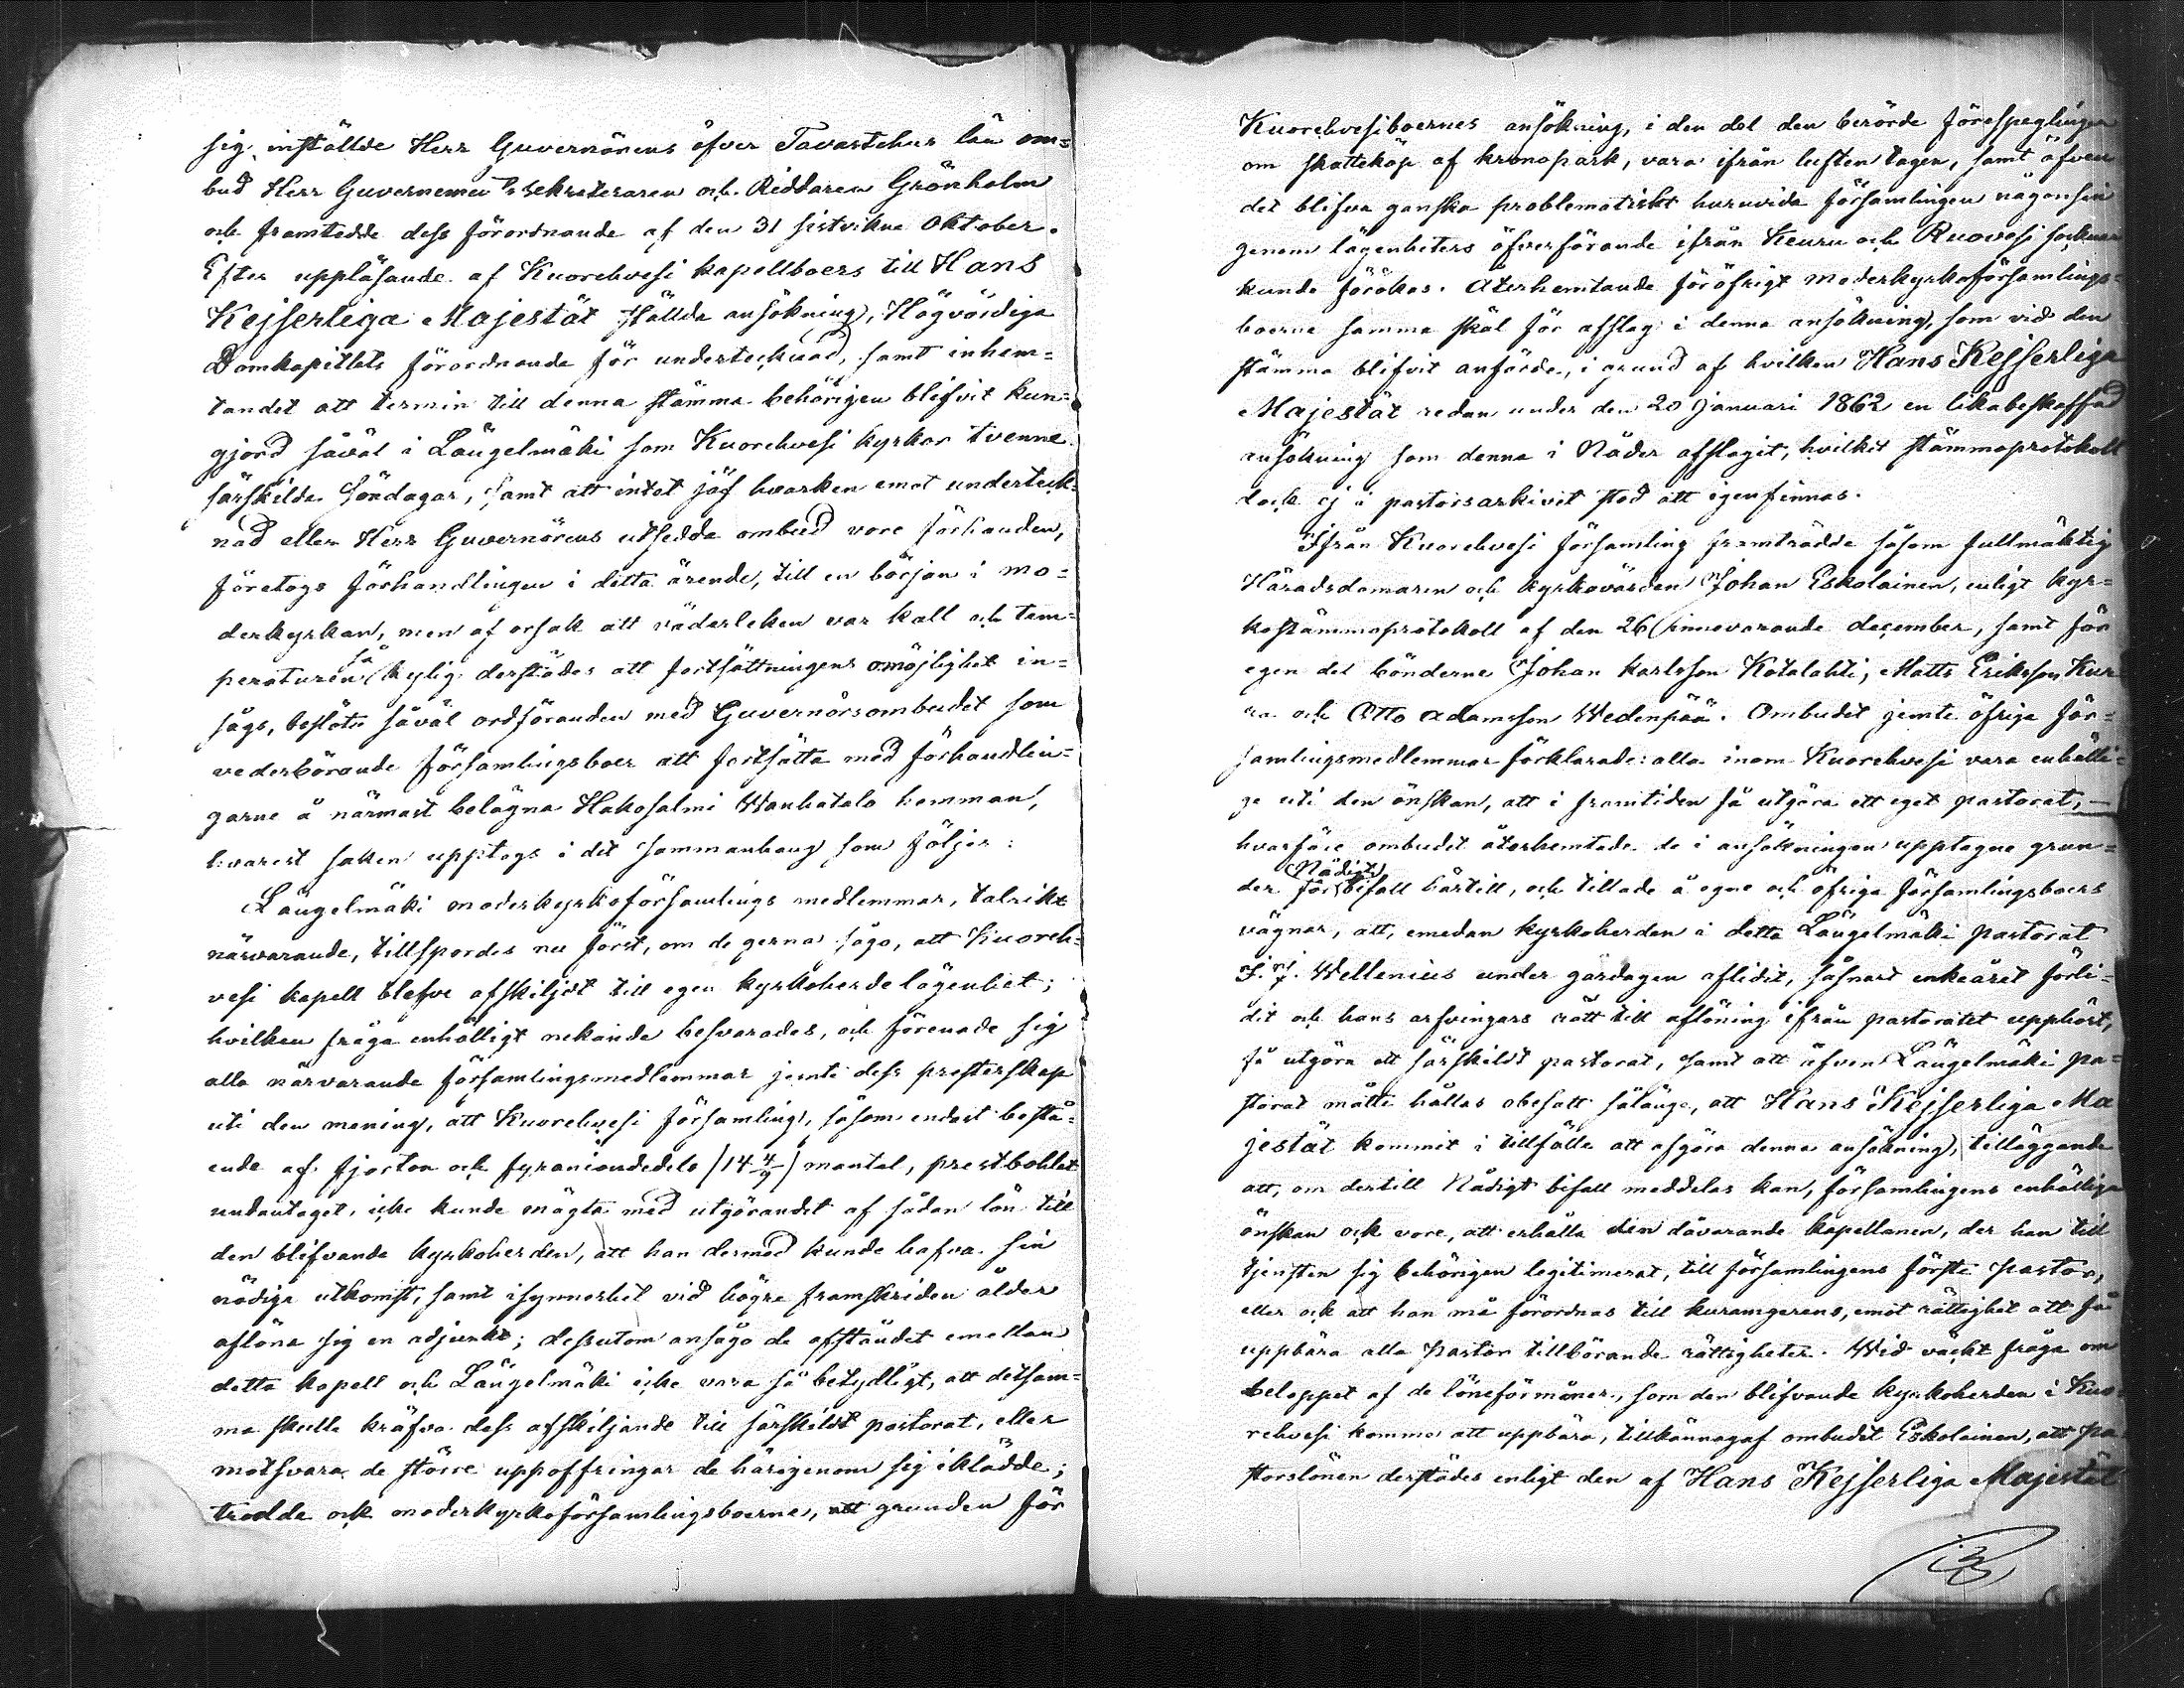 sig inställde Herr Guvernörens öfver Tavastehus län om=
bud Herr Guvernements sekreteraren och Riddaren Grönholm
och framtedde dess förordnande af den 31 sistvikne Oktober.
Efter uppläsande af Kuorehvesi kapellboers till Hans
Kejserliga Majestät ställda ansökning, Högvördiga
Domkapitlets förordnande för undertecknad, samt inhem=
tandet att termin till denna stämma behörigen blifvit kun=
gjord såväl i Längelmäki som Kuorehvesi kyrkor tvenne
särskilda söndagar, samt att intet jäf hvarken emot underteck=
nad eller Herr Guvernörens utsedda ombud vore förhanden,
företogs förhandlingen i detta ärende, till en början i mo=
derkyrkan, men af orsak att väderleken var kall och tem=
peraturen så kylig derstädes att fortsättningens omöjlighet in=
sågs, beslöts såväl ordföranden med Guvernörsombudet som
vederbörande församlingsboer att fortsätta med förhandlin=
garne å närmast belägna Hakosalmi Wanhatalo hemman,
hvarest saken upptogs i det sammanhang som följer:
Längelmäki moderkyrkoförsamlings medlemmar, talrikt
närvarande, tillspordes nu först, om de gerna sågo, att Kuoreh=
vesi kapell blefve afskiljdt till egen kyrkoherdelägenhet;
hvilken fråga enhälligt nekande besvarades, och förenade sig
alla närvarande församlingsmedlemmar jemte dess presterskap
uti den mening, att Kuorehvesi församling, såsom endast bestå=
ende af fjorton och fyraniondedels /14 4/9/ mantal, prestbohlet
undantaget, icke kunde mägta med utgörandet af sådan lön till
den blifvande kyrkoherden, att han dermed kunde hafva sin
nödiga utkomst, samt isynnerhet vid högre framskriden ålder
aflöna sig en adjunkt; dessutom ansågo de afståndet emellan
detta kapell och Längelmäki icke vara så betydligt, att detsam=
ma skulle kräfva dess afskiljande till särskildt pastorat, eller
motsvara de större uppoffringar de härigenom sig iklädde;
trodde ock moderkyrkoförsamlingsboerne, att grunden för
Kuorehvesiboernes ansökning, i den del den berörde förespeglingen
om skatteköp af kronopark, vara ifrån luften tagen, samt äfven
det blifva ganska problematiskt huruvida församlingen någonsin
genom lägenheters öfverförande ifrån Keuru och Ruovesi socknar
kunde förökas. Återhemtande föröfrigt moderkyrkoförsamlings=
boerne samma skäl för afslag i denna ansökning, som vid den
stämma blifvit anförde, i grund af hvilken Hans Kejserliga
Majestät redan under den 20 Januari 1862 en likabeskaffad
ansökning som denna i Nåder afslagit, hvilket stämmoprotokoll
dock ej i pastorsarkivet stod att igenfinnas.
Ifrån Kuorehvesi församling framträdde såsom fullmäktig
Häradsdomaren och kyrkovärden Johan Eskolainen, enligt kyr=
kostämmoprotokoll af den 26 innevarande december, samt för
egen del bönderne Johan Karlsson Kotalahti, Matts Eriksson Kur
ra och Otto Adamsson Wedenpää. Ombudet jemte öfriga för=
samlingsmedlemmar förklarade: alla inom Kuorehvesi vara enhälli=
ge uti den önskan, att i framtiden få utgöra ett eget pastorat, —
hvarföre ombudet återhemtade de i ansökningen upptagne grun=
der för Nådigt bifall härtill, och tillade å egne och öfriga församlingsboers
vägnar, att, emedan kyrkoherden i detta Längelmäki pastorat
Wellenius under gårdagen aflidit, såsnart enkeåret förli=
dit och hans arfvingars rätt till aflöning ifrån pastoratet upphört,
få utgöra ett särskildt pastorat, samt att äfven Längelmäki pa=
storat måtte hållas obesatt sålänge, att Hans Kejserliga Ma
jestät kommit i tillfälle att afgöra denna ansökning, tilläggande
att, om dertill Nådigt bifall meddelas kan, församlingens enhälliga
önskan ock vore, att erhålla den dåvarande kapellanen, der han till
tjensten sig behörigen legitimerat, till församlingens förste pastor,
eller ock att han må förordnas till kuramgerens, emot rättighet att få
uppbära alla Pastor tillbörande rättigheter. Wid väckt fråga om
beloppet af de löneförmåner, som den blifvande kyrkoherden i Kuo
rehvesi komme att uppbära, tillkännagaf ombudet Eskolainen, att pa
storslönen derstädes enligt den af Hans Kejserliga Majestät